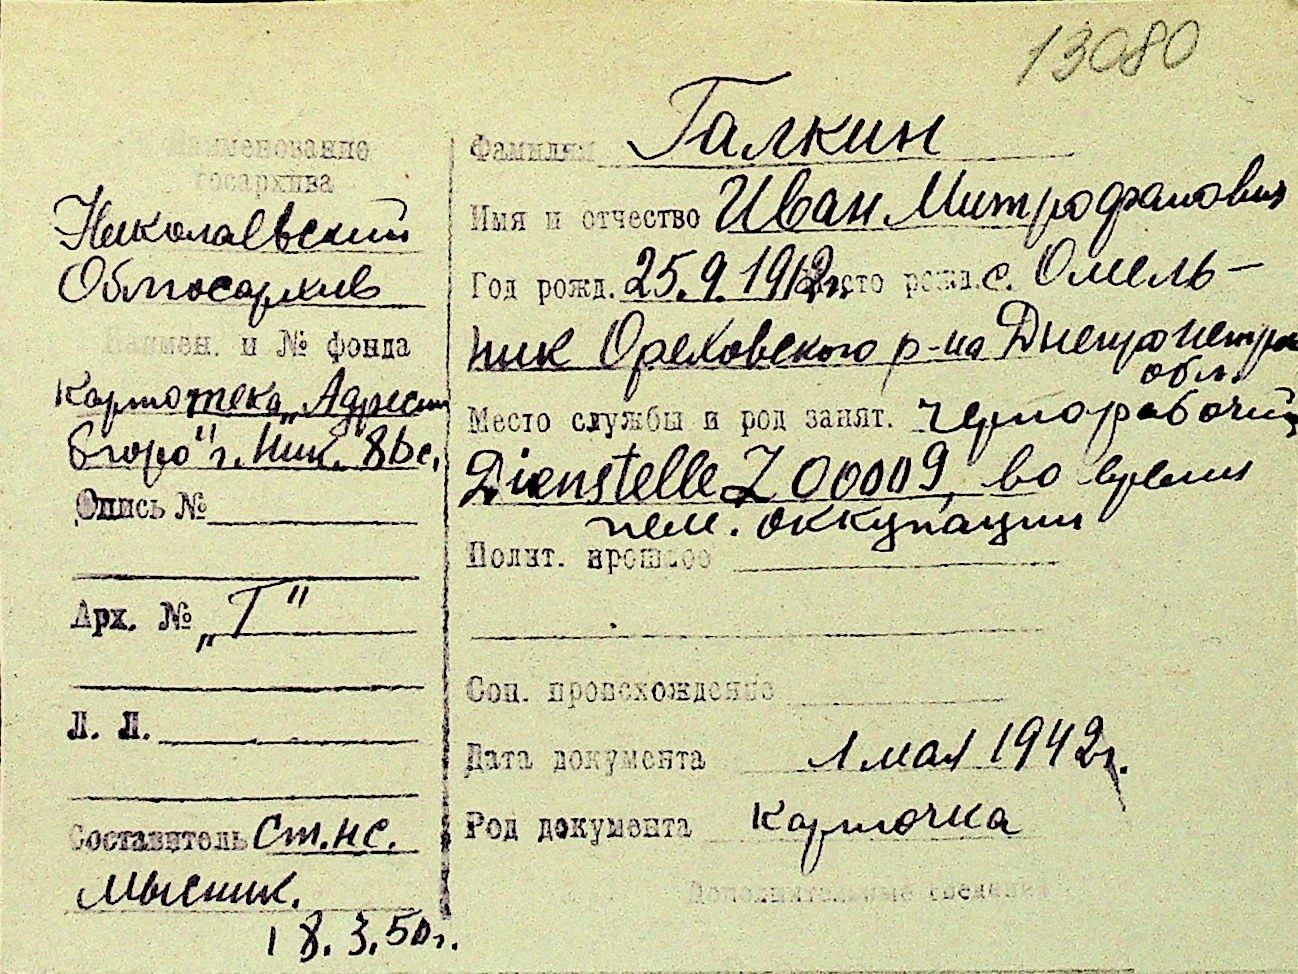 13080
Наименование
госархива
Николаевский
Облгосархив
Наимен. и № фонда
Картотека „Адресн
бюро" г. Ник.
Опись №
Арх. № „Г"
Л. Л.
Составитель Ст. нс.
Мысник.
18.3.50г.
Фамилия Галкин
Имя и отчество Иван Митрофанович
Год рожд. 25.9.1912г. Место рожд. с. Омель-
ник Ореховского р-на Днепропетров
обл.
Место службы и род занят. чернорабочий
Dienstelle Z 00009, во время
нем. оккупации
Полит. прошлое
Соц. происхождение
Дата документа 1 мая 1942г.
Род документа карточка
Дополнительные сведения